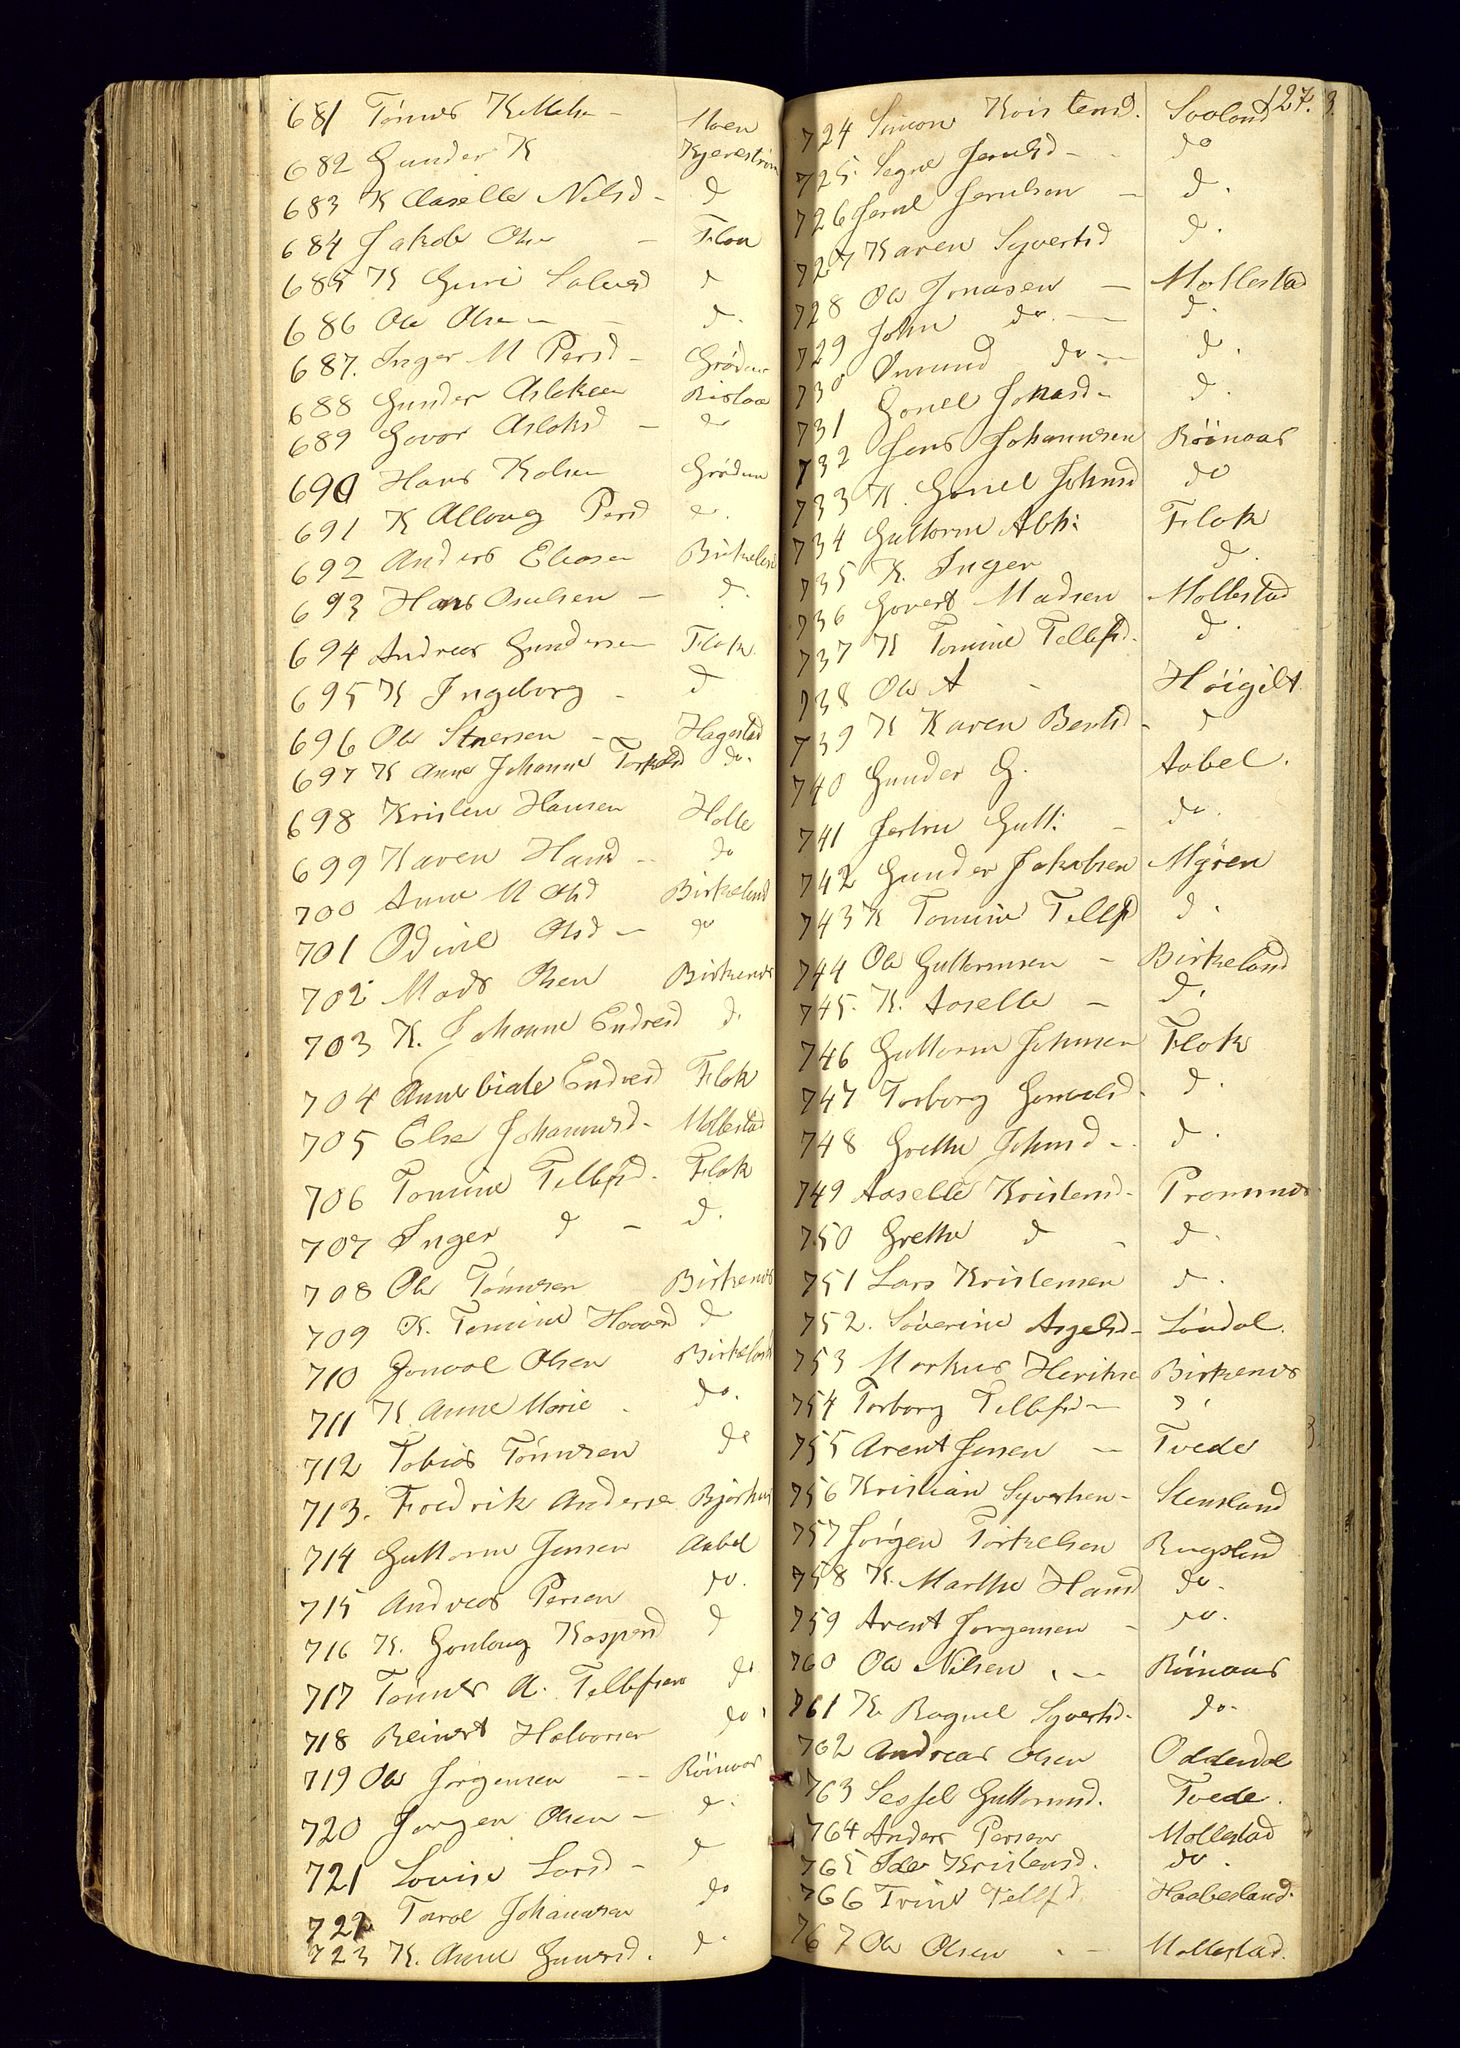 681 Tønnes Kittelse - Moen
682 Gunder K Kjerestrøm
683 K Aaselle Nilsd - d
684 Jakob Olse - Flaa
685 K Guri Salvesd d
686 Ole Olsen - - d.
687. Inger M Persd - Grødum
688 Gunder Aslaksen Rislaa
689 Govor Aslaksd - do
690 Hans Kolsen Grødum
691 K Allaug Persd d.
692 Anders Eliasen Birkeland
693 Hans Osulsen - d.
694 Andreas Gundersen Flak
695 K Ingeborg - d
696 Ole Sinersen - Hagestad
697 K Anne Johanne Torkelsd do.
698 Kristen Hansen Holle
699 Karen Hansd - do
700 Anne M Olsd Birkeland
701 Odine Olsd - do
702 Mads Olsen Birkenes
703 K. Johanne Endresd d.
704 Anne beate Endresd Flak
705 Else Johannesd - Mollestad
706 Tomine Tellefsd - Flak
707 Inger d - d.
708 Ole Tønnesen Birkenes
709 K. Tomine Haavorsd d
710 Gonval Olsen Birkeland
711 K Anne Marie . do.
712 Tobias Tønnesen do
713. Fredrik Anderse Bjørhus
714 Guttorm Jensen Aabel
715 Andreas Persen do.
716 K. Gonlaug Kaspersd d
717 Tønnes A. Tellefsen do
718 Reinert Halvorsen do.
719 Ole Jørgensen - - Röinaas
720 Jørgen Olsen - d.
721 Lovise Larsd - d
722 Tarol Johannesen do
723 K. Anne Gunersd. d.
127.
724 Simon Kristensd. Saaland
725. Segne Jerulsd - - do
726 Jerul Jerulsen - d.
727 Karen Syvertsd d.
728 Ole Jonasen - Mollestad
729 John do. - - d.
730 Omund do - - d.
731 Gonel Jonasd - d.
732 Jens Johannesen Röinaas
733 K. Gonel Johnsd do
734 Guttorm Abh: Flak
735 K. Inger d.
736 Govert Madsen Mollestad
737 K Tomine Tellefsd. d.
738 Ole A - Høigilt
739 K Karen Bentsd - d
740 Gunder G. Aabel.
741 Jertru Gutt: - do.
742 Gunder Jakobsen Myren
743 K Tomine Tellefsd d.
744 Ole Guttormsen - Birkeland
745. K. Aaselle - d.
746 Guttorm Johnsen Flak
747 Torborg Gonvalsd. d.
748 Grethe Johnsd - . d.
749 Aaselle Kristensd - Tromnes
750 Grethe d - d.
751 Lars Kristensen d.
752. Søverine Asgelsd - Løvdal.
753 Markus Henrikse Birkenes
754 Torborg Tellefsd - d.
755 Arent Jensen - Tvede
756 Kristian Syvertsen - Stensland
757 Jørgen Torkelsen Rugsland
758 K. Marthe Hansd do.
759 Arent Jørgensen - do.
760 Ole Nilsen . - Röinaas
761 K. Raguel Syvertsd. do.
762 Andreas Olsen Oddendal
763 Sessel Guttormsd. Tvede.
764 Anders Persen Mollestad
765 Ide Kristensd. do.
766 Trine Tellefsd Haabesland.
767 Ole Olsen . - Mollestad.